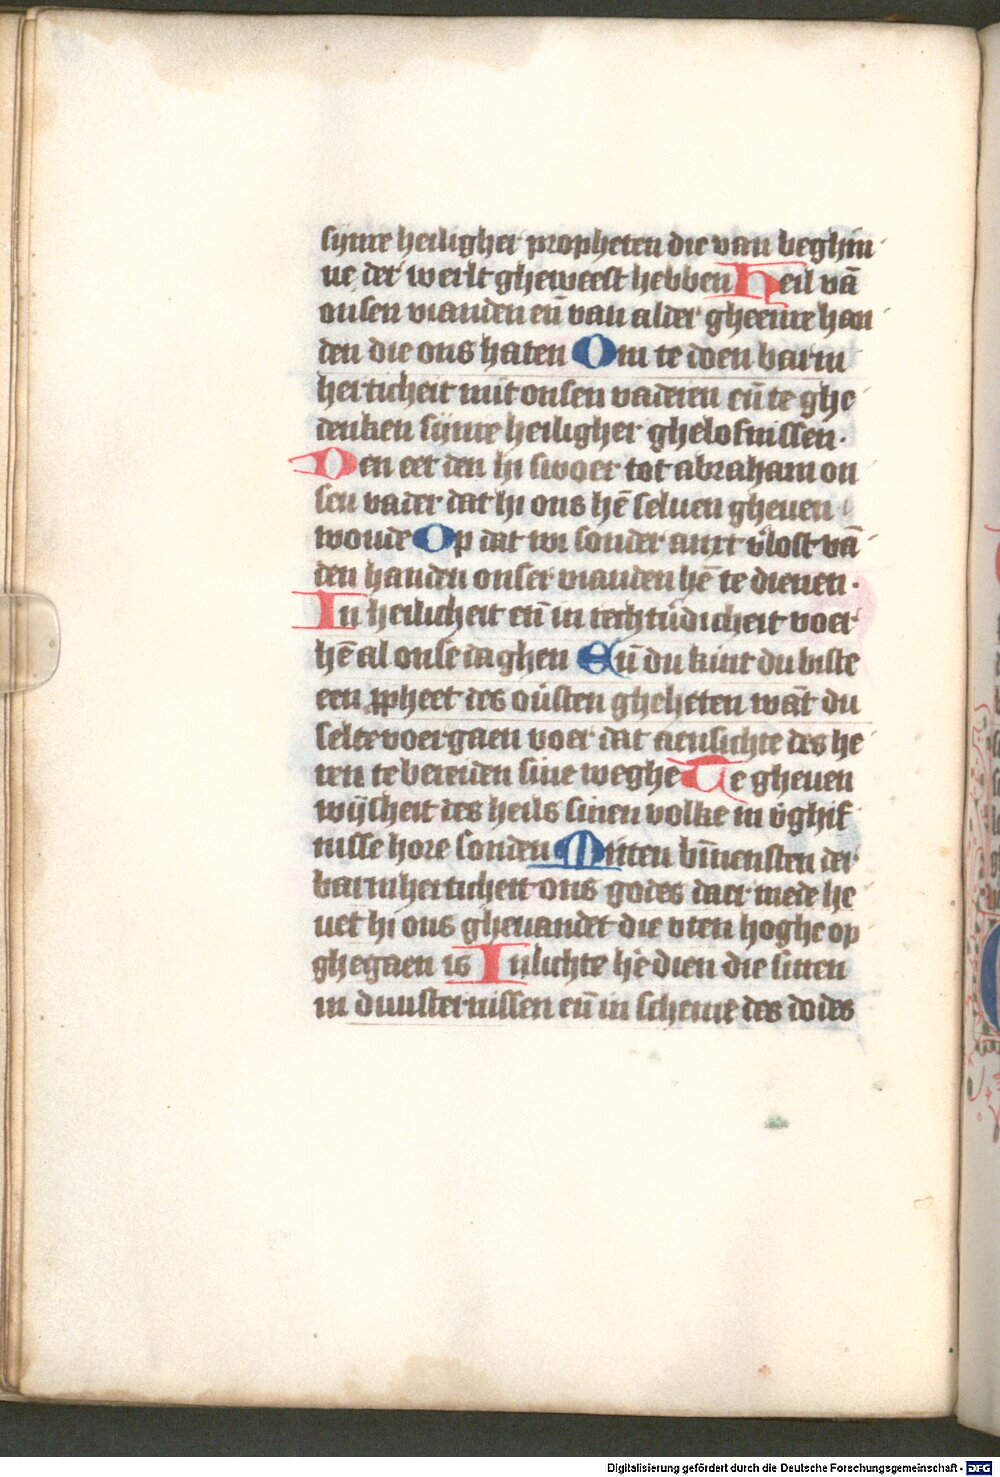 sijnre heiligher propheten die van beghin
ne der werlt gheweest hebben Heil vā
onsen vianden eñ van alder gheenre han
den die ons haten Om te doen barm
herticheit mit onsen vaderen eñ te ghe
denken sijnre heiligher ghelofnissen.
Den eet den hi swoer tot abraham on
sen vader dat hi ons hē seluen gheuen
woude Op dat wi sonder anxt v̾lost vā
den handen onser vianden hē te dienen.
In heilicheit eñ in rechtũdicheit voer
hē al onse daghen Eñ du kint du biste
een ꝓpheet des ou̾sten gheheten wāt du
selte voergaen voer dat aensichte des he
ren te bereiden sine weghe Te gheuen
wijsheit des heils sinen volke in v̾ghif
nisse hore sonden Mitten bīnensten der
barmherticheit ons godes daer mede he
uet hi ons gheuandet die vten hoghe op
ghegaen is Inlichte hē dien die sitten
in duusternissen eñ in scheme des dodes
Digitalisierung gefördert durch die Deutsche Forschungsgemeinschaft - DFG